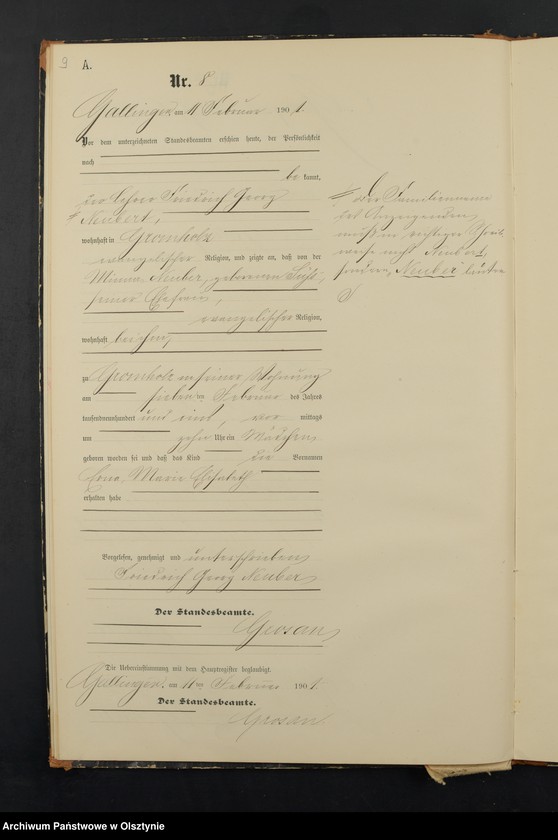 9
A.
Nr. 8
Gallingen am 11 Februar 1901.
Vor dem unterzeichneten Standesbeamten erschien heute, der Persönlichkeit
nach
bekannt,
der Lehrer Friedrich Georg
Neubert,
wohnhaft in Gromholz
evangelischer Religion, und zeigte an, daß von der
Minna Neuber, geborenen
seiner Ehefrau,
evangelischer Religion,
wohnhaft bei ihm,
zu Gromholz in seiner Wohnung
am sieben ten Februar des Jahres
tausendneunhundert und eins, vor mittags
um zehn Uhr ein Mädchen
geboren worden sei und daß das Kind die Vornamen
Erna Marie Elisabeth
erhalten habe
Vorgelesen, genehmigt und unterschrieben
Friedrich Georg Neuber
Der Standesbeamte.
Grosan
Die Uebereinstimmung mit dem Hauptregister beglaubigt.
Gallingen am 11ten Februar 1901.
Der Standesbeamte.
Grosan
Der Familienname
des Anzeigenden
muß in richtiger Schreib
weise nicht Neubert,
sondern Neuber lauten
Archiwum Państwowe w Olsztynie